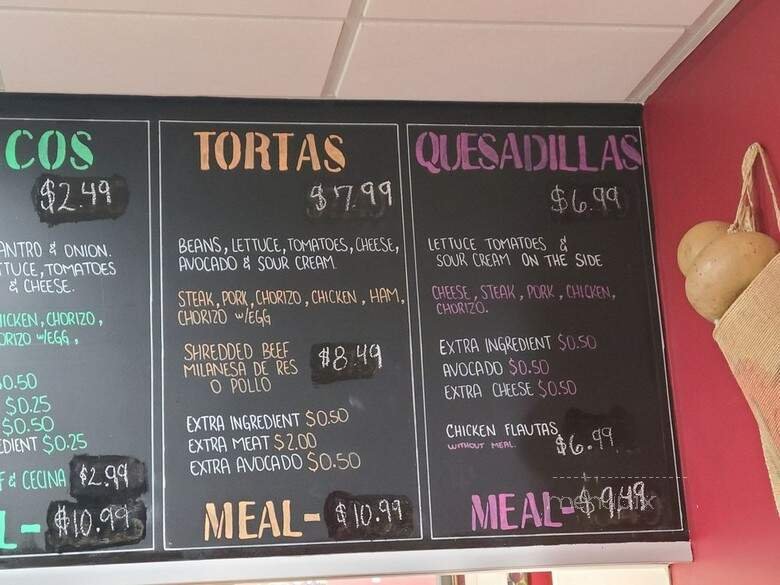 COS
$2.49
ANTRO & ONION.
TTUCE, TOMATOES
& CHEESE.
HICKEN, CHORIZO,
ORIZO w/EGG,
$0.50
$0.25
$0.50
EDIENT $0.25
F & CECINA $2.99
L- $10.99
TORTAS
$7.99
BEANS, LETTUCE, TOMATOES, CHEESE,
AVOCADO & SOUR CREAM.
STEAK, PORK, CHORIZO, CHICKEN, HAM,
CHORIZO w/EGG
SHREDDED BEEF
MILANESA DE RES
O POLLO
$8.49
EXTRA INGREDIENT $0.50
EXTRA MEAT $2.00
EXTRA AVOCADO $0.50
MEAL- $10.99
QUESADILLAS
$6.99
LETTUCE TOMATOES &
SOUR CREAM ON THE SIDE
CHEESE, STEAK, PORK, CHICKEN,
CHORIZO.
EXTRA INGREDIENT $0.50
AVOCADO $0.50
EXTRA CHEESE $0.50
CHICKEN FLAUTAS
WITHOUT MEAL.
$6.99
MEAL- $9.49
menupix